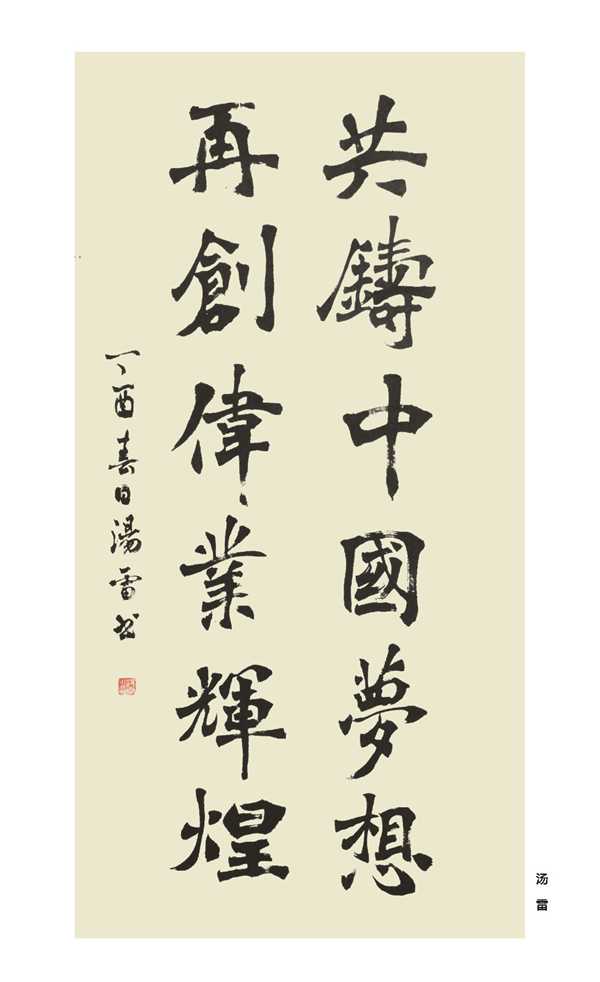 共鑄中國夢想
再創偉業輝煌
丁酉春日湯雷书
汤雷